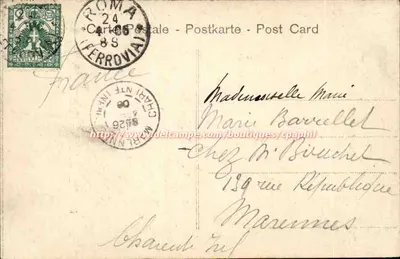 ROMA
24
4-06
8S
(FERROVIA)
Carte Postale - Postkarte - Post Card
France
MARENNES
CHARENTE INF.
26
4
06
http://www.delcampe.com/boutiques/cpaphil
Mademoiselle Marie
Marie Barrellet
Chez Mr Bouchet
139 rue République
Marennes
Charente Inf